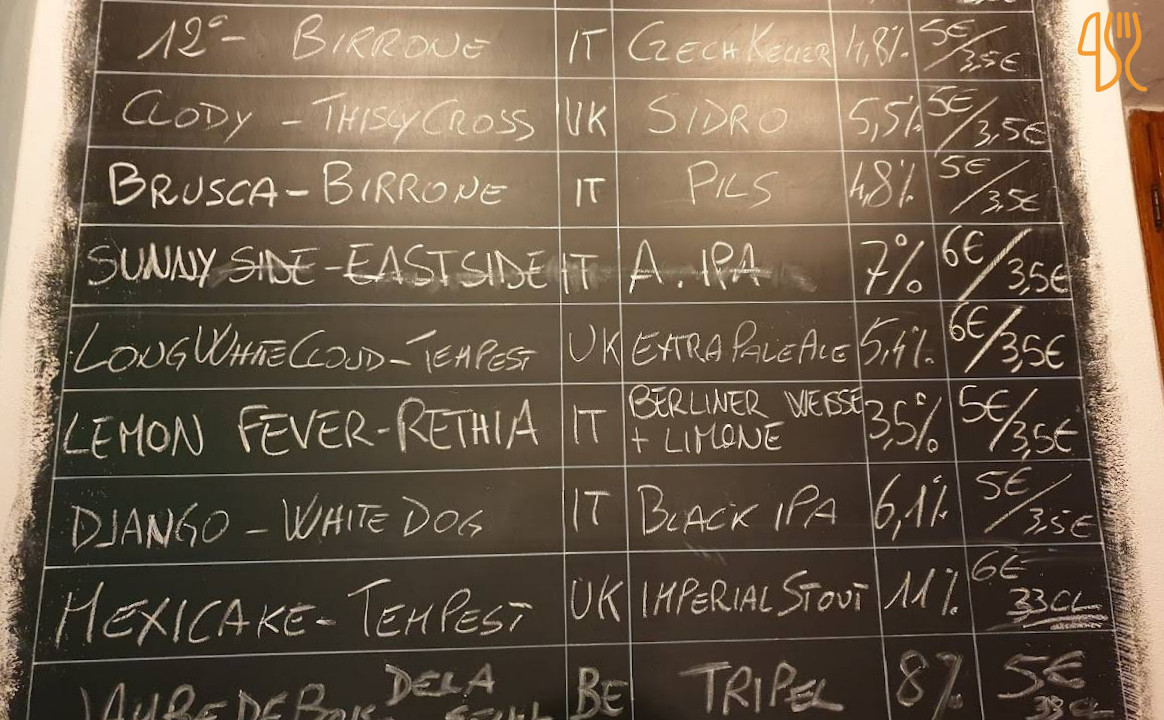 12° - BIRRONE IT CZECH KELLER 4,8% 5€/3,5€
CLODY - THISLYCROSS UK SIDRO 5,5% 5€/3,5€
BRUSCA - BIRRONE IT PILS 4,8% 5€/3,5€
SUNNY SIDE - EASTSIDE IT A. IPA 7% 6€/3,5€
LONG WHITE CLOUD - TEMPEST UK EXTRA PALE ALE 5,4% 6€/3,5€
LEMON FEVER - RETHIA IT BERLINER WEISSE
+ LIMONE 3,5% 5€/3,5€
DJANGO - WHITE DOG IT BLACK IPA 6,1% 5€/3,5€
MEXICAKE - TEMPEST UK IMPERIAL STOUT 11% 6€
33CL
DE LA BE TRIPEL 8% 5€